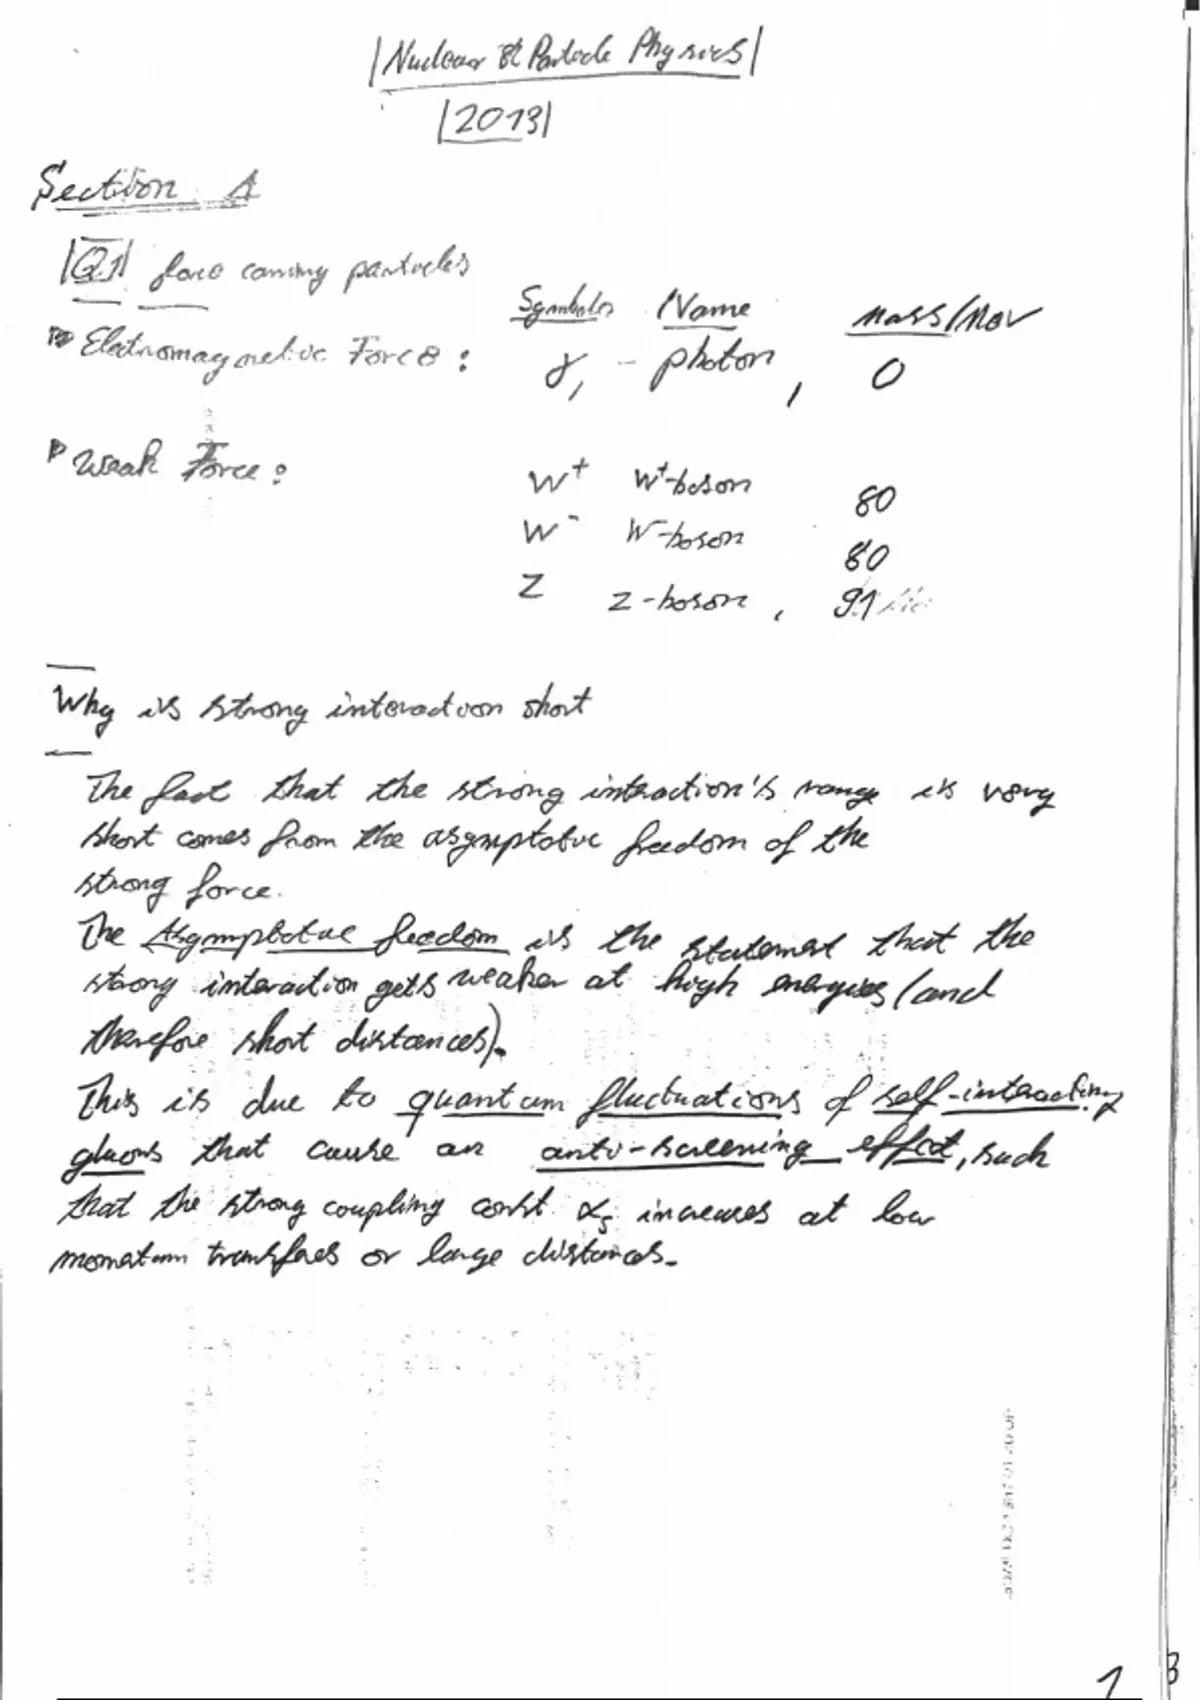 Nuclear & Particle Physics
2013
Section A
Q.1 force carrying particles
Symbols Name Mass/MeV
Electromagnetic Force: γ, - photon, 0
Weak Force:
W⁺ W⁺-boson 80
W⁻ W⁻-boson 80
Z Z-boson, 91
Why is strong interaction short
The fact that the strong interaction's range is very
short comes from the asymptotic freedom of the
strong force.
The Asymptotic freedom is the statement that the
strong interaction gets weaker at high energies (and
therefore short distances).
This is due to quantum fluctuations of self-interacting
gluons that cause an anti-screening effect, such
that the strong coupling const. αs increases at low
momentum transfers or large distances.
1
3